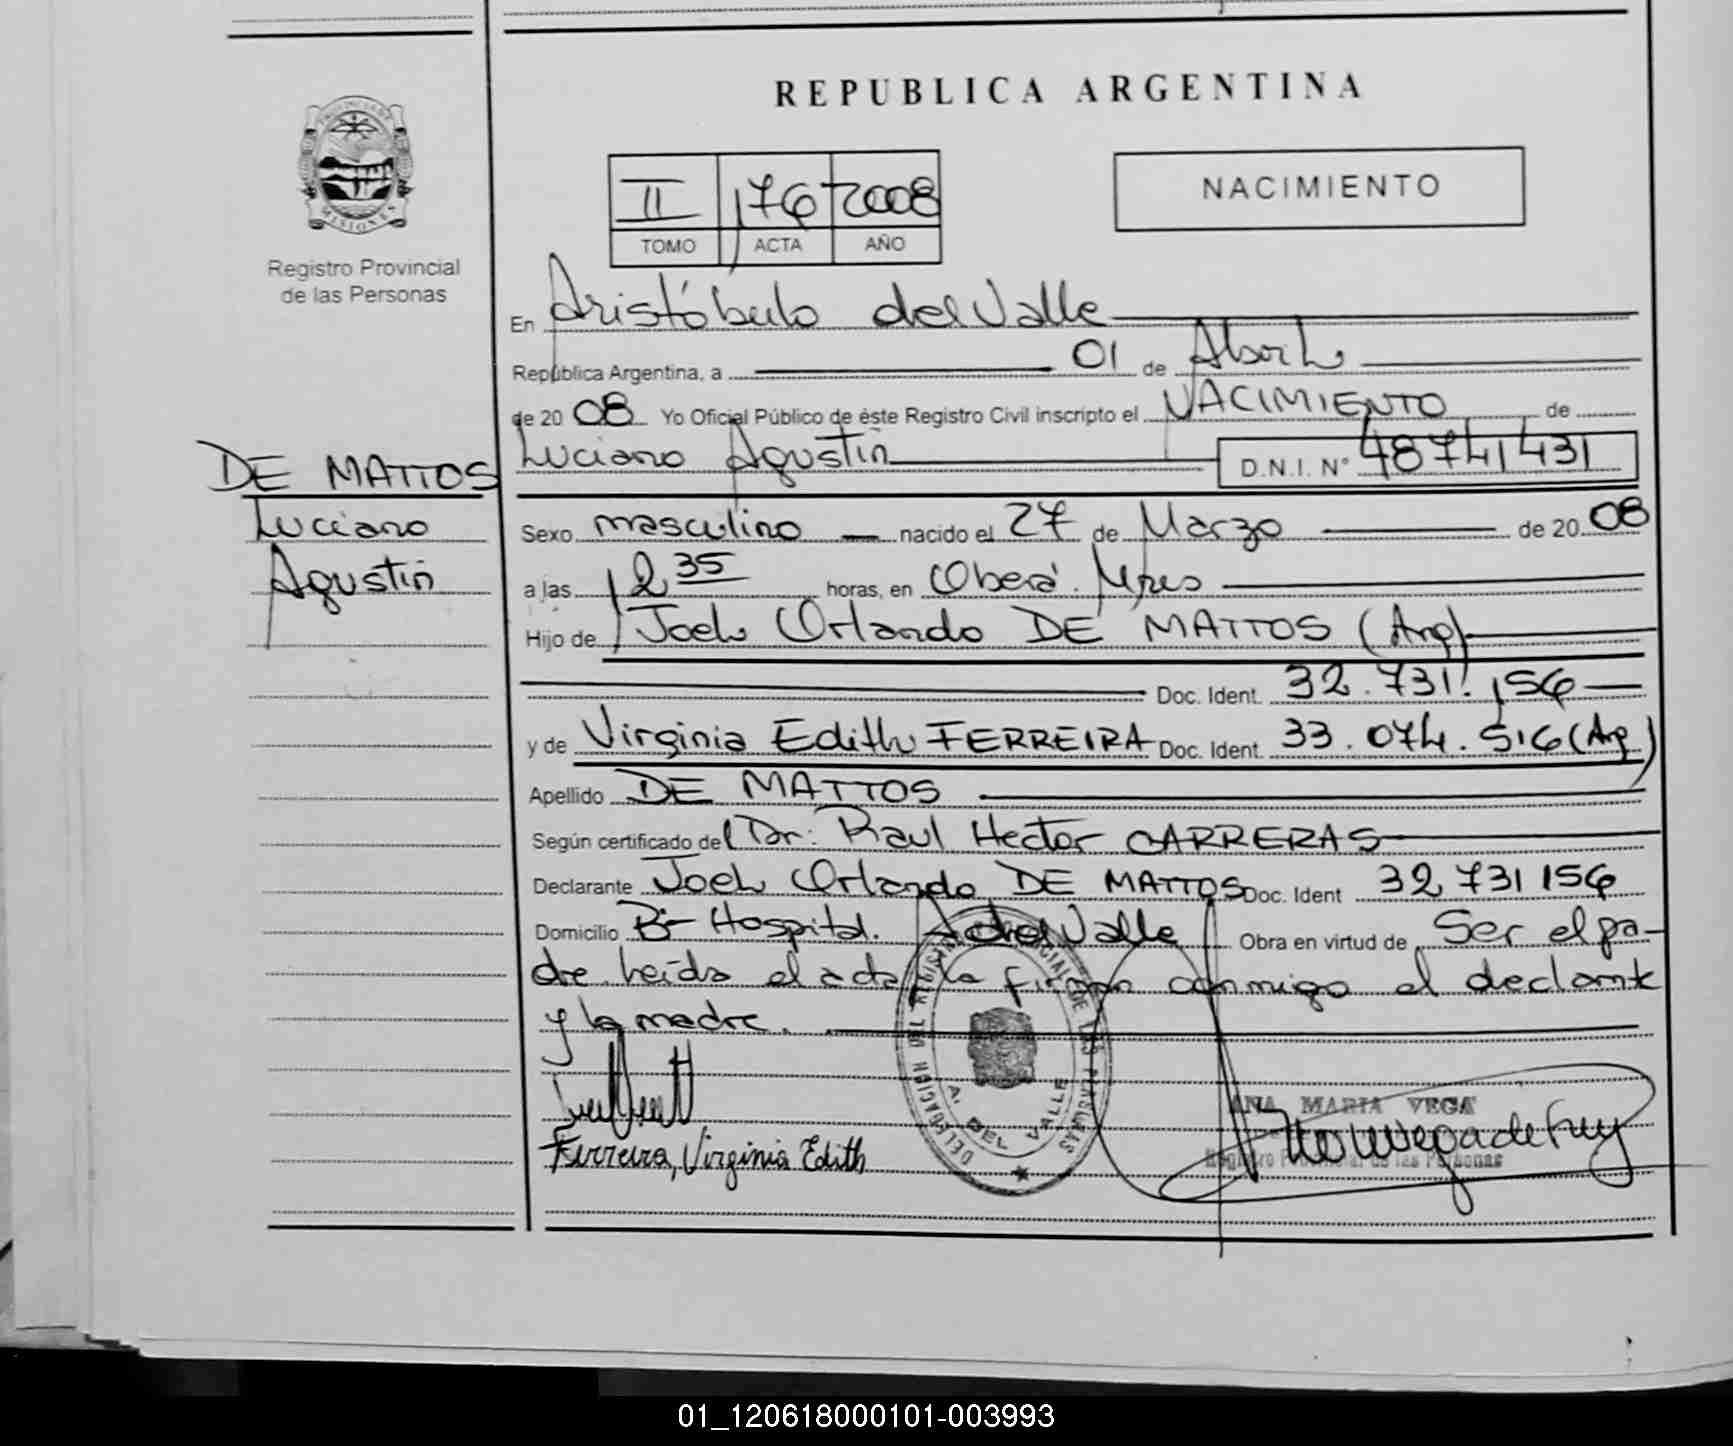 REPUBLICA ARGENTINA
II 176 2008
TOMO ACTA AÑO
NACIMIENTO
PROVINCIA DE
MISIONES
Registro Provincial
de las Personas
DE MATTOS
Luciano
Agustín
En Aristóbulo del Valle
República Argentina, a 01 de Abril
de 20 08 Yo Oficial Público de éste Registro Civil inscripto el NACIMIENTO de
Luciano Agustín D.N.I. N° 48741431
Sexo masculino nacido el 27 de Marzo de 20 08
a las 12 35 horas, en Oberá. Mnes
Hijo de Joel Orlando DE MATTOS (Arg)
Doc. Ident. 32.731.156
y de Virginia Edith FERREIRA Doc. Ident. 33.074.516 (Arg)
Apellido DE MATTOS
Según certificado del Dr. Raul Hector CARRERAS
Declarante Joel Orlando DE MATTOS Doc. Ident 32 731 156
Domicilio Bº Hospital. A del Valle Obra en virtud de Ser el pa-
dre leída el acta la firman conmigo el declarante
y la madre.
DELEGACION DEL REGISTRO PROVINCIAL DE LAS PERSONAS
A. DEL VALLE
Ferreira, Virginia Edith
ANA MARIA VEGA
Registro Provincial de las Personas
01_120618000101-003993